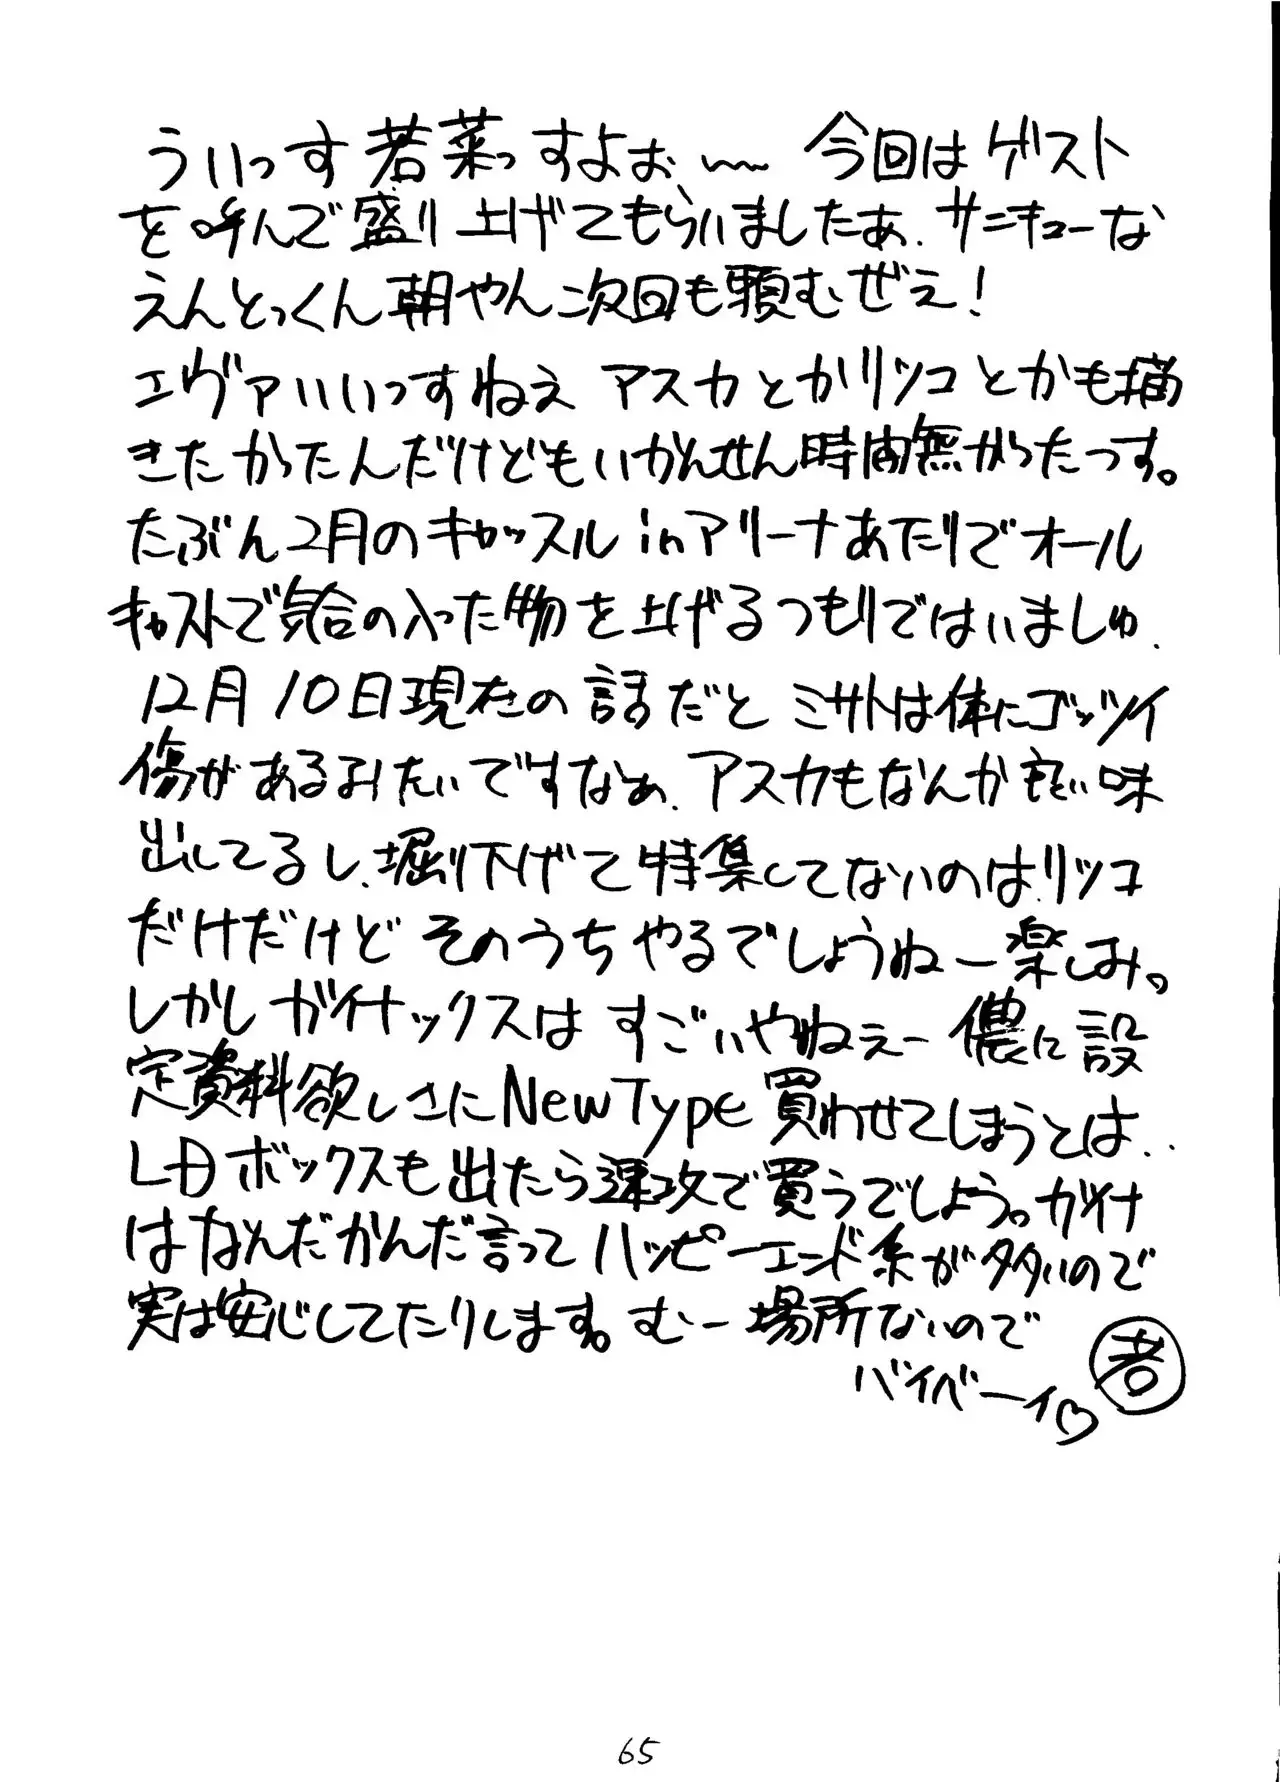 ういっす若菜っすよぉ〜 今回はゲスト
を呼んで盛り上げてもらいましたあ、サンキューな
えんとっくん朝やん次回も頼むぜェ!
エヴァいいっすねえ アスカとかリツコとかも描
きたかったんだけどもいかんせん時間無かったっす。
たぶん2月のキャッスルinアリーナあたりでオール
キャストで気合の入った物を上げるつもりではいましゅ、
12月10日現在の話だと ミサトは体にゴッツイ
傷があるみたいですなぁ、アスカもなんか良い味
出してるし、堀り下げて特集してないのは、リツコ
だけだけど そのうちやるでしょうねー楽しみ。
しかし ガイナックスは すごいやねぇー 儂に設
定資料欲しさにNewType買わせてしまうとは‥
LDボックスも出たら速攻で買うでしょう。ガイナ
はなんだかんだ言ってハッピーエンド系が多いので
実は安心してたりします。むー場所ないので
バイベーイ♡ 若
65